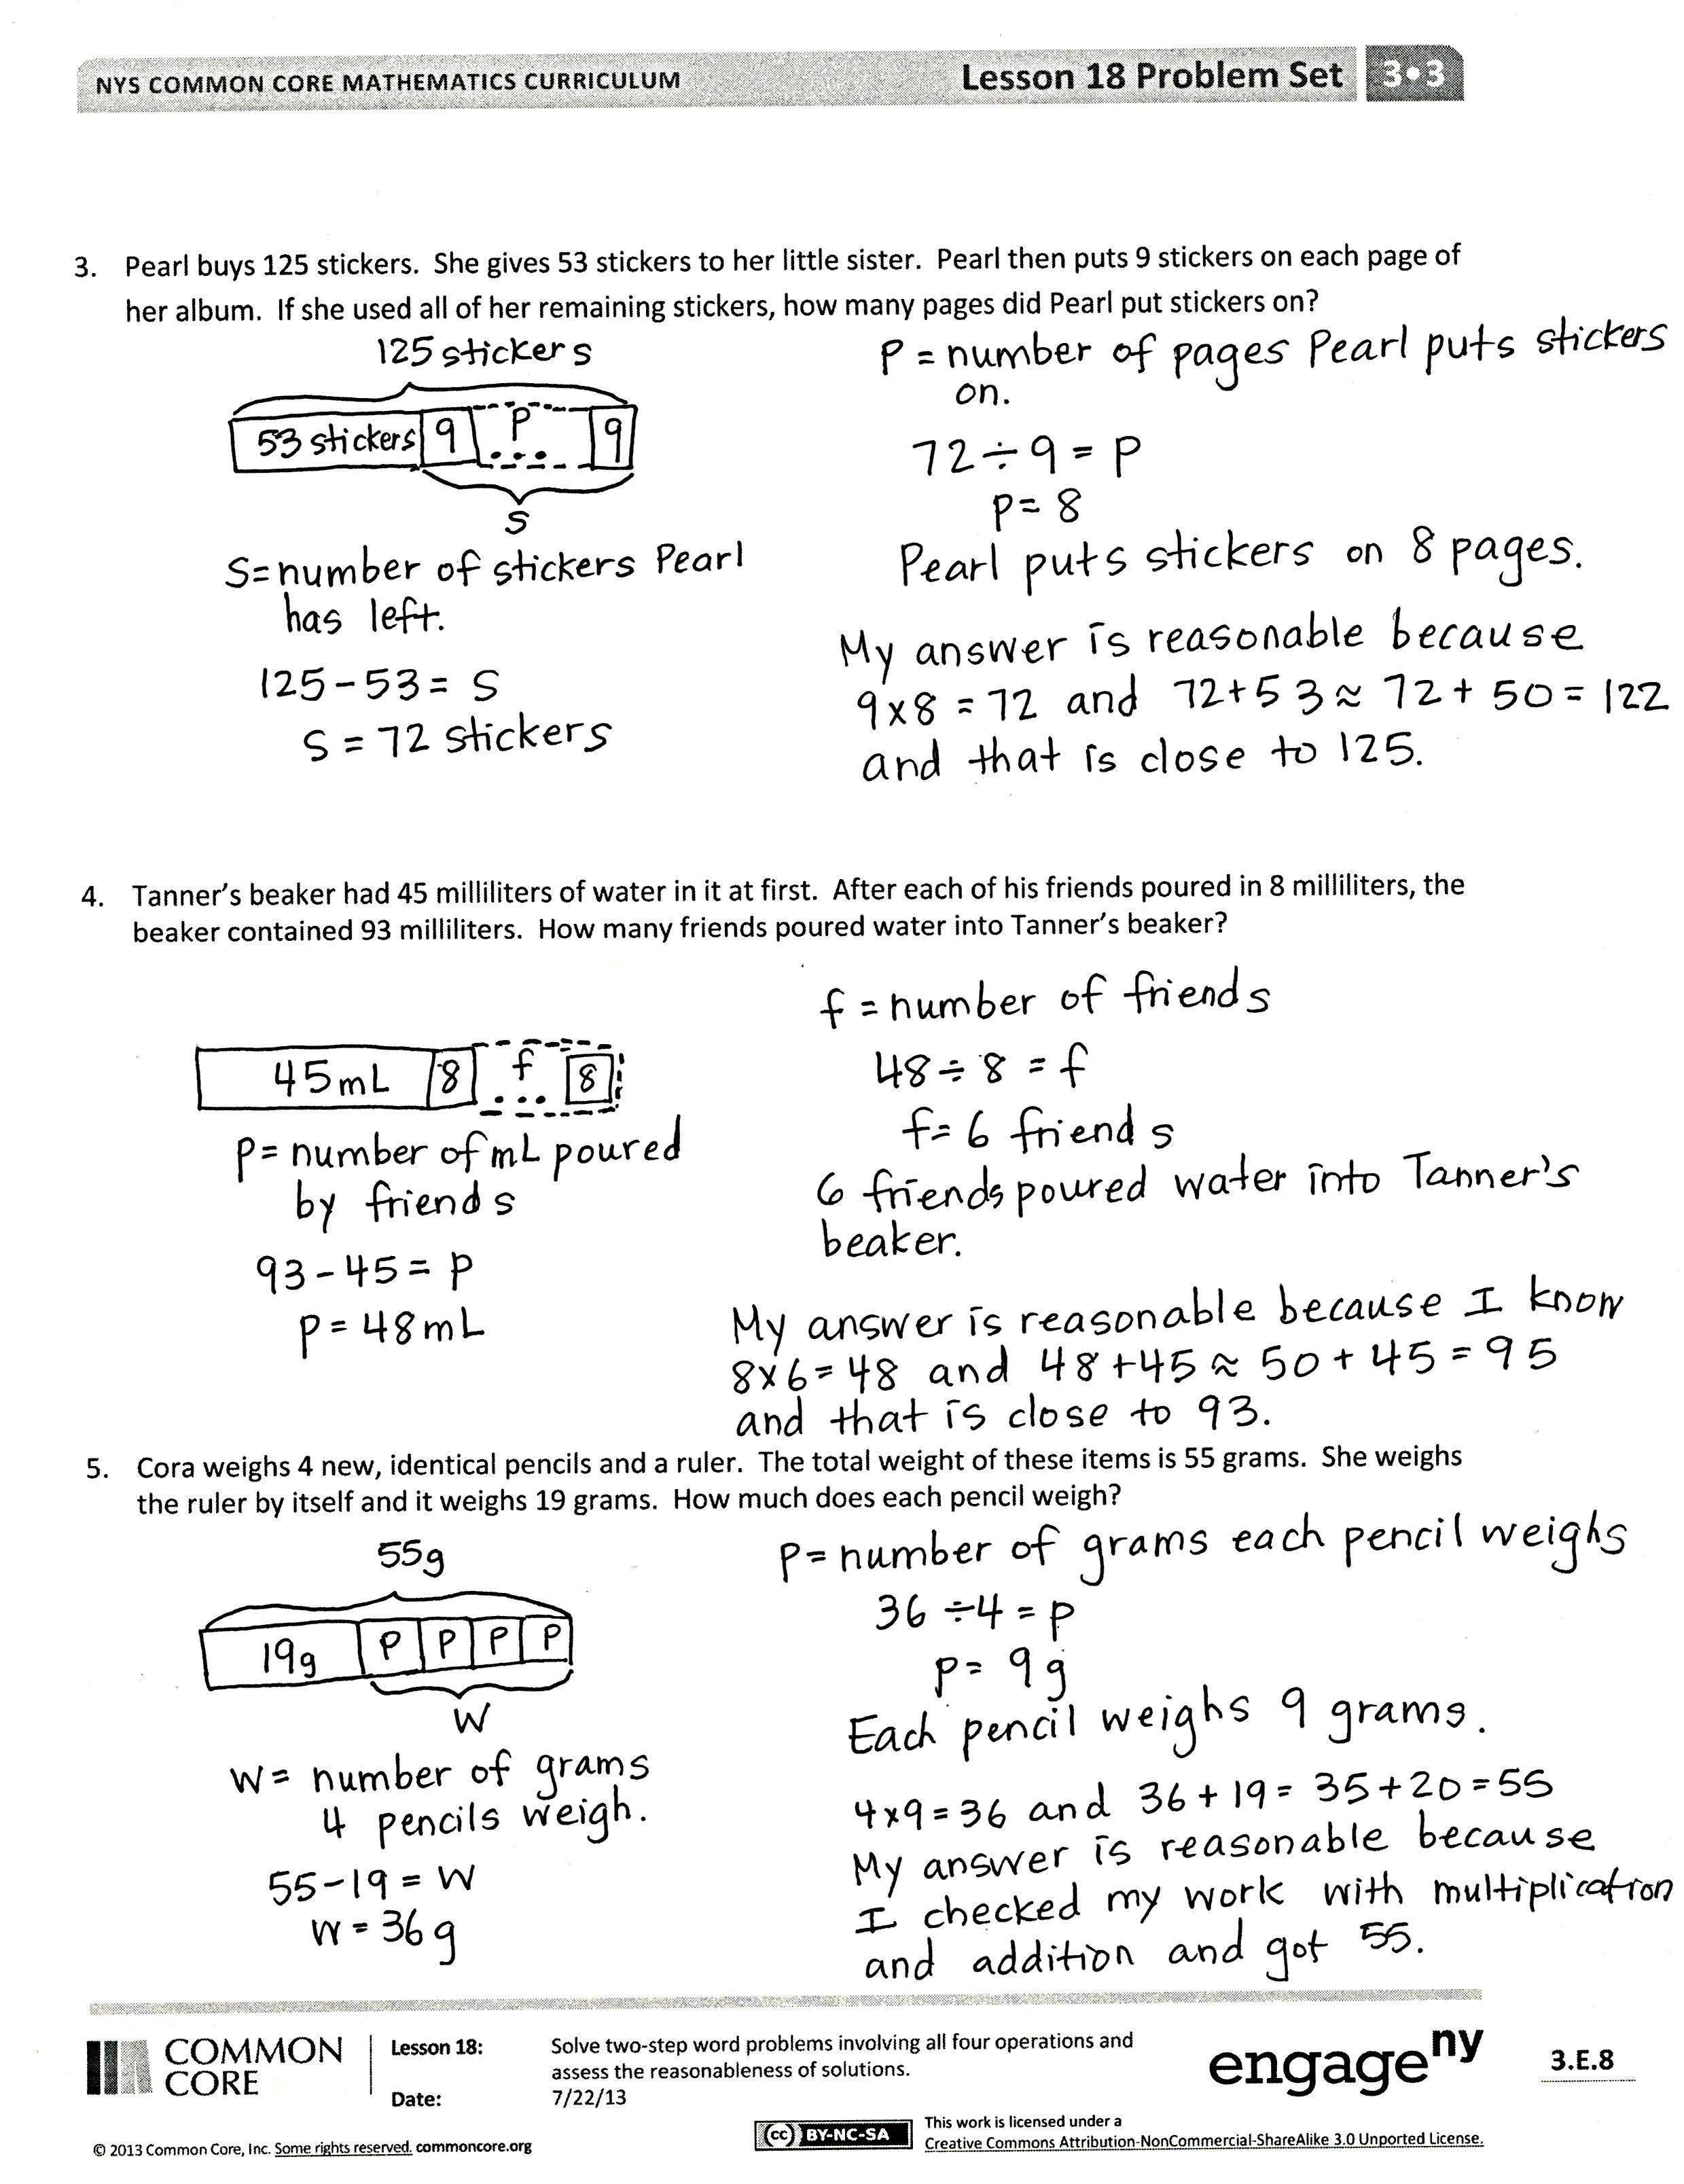 NYS COMMON CORE MATHEMATICS CURRICULUM
Lesson 18 Problem Set 3•3
3. Pearl buys 125 stickers. She gives 53 stickers to her little sister. Pearl then puts 9 stickers on each page of
her album. If she used all of her remaining stickers, how many pages did Pearl put stickers on?
125 stickers
53 stickers 9 p ... 9
s
s=number of stickers Pearl
has left.
125-53= s
s = 72 stickers
p = number of pages Pearl puts stickers
on.
72÷9=p
p=8
Pearl puts stickers on 8 pages.
My answer is reasonable because
9x8=72 and 72+53≈72+50=122
and that is close to 125.
4. Tanner's beaker had 45 milliliters of water in it at first. After each of his friends poured in 8 milliliters, the
beaker contained 93 milliliters. How many friends poured water into Tanner's beaker?
45mL 8 f ... 8
p= number of mL poured
by friends
93-45=p
p=48mL
f=number of friends
48÷8=f
f=6 friends
6 friends poured water into Tanner's
beaker.
My answer is reasonable because I know
8x6=48 and 48+45≈50+45=95
and that is close to 93.
5. Cora weighs 4 new, identical pencils and a ruler. The total weight of these items is 55 grams. She weighs
the ruler by itself and it weighs 19 grams. How much does each pencil weigh?
55g
19g p p p p
w
w= number of grams
4 pencils weigh.
55-19=w
w=36g
p=number of grams each pencil weighs
36÷4=p
p=9g
Each pencil weighs 9 grams.
4x9=36 and 36+19=35+20=55
My answer is reasonable because
I checked my work with multiplication
and addition and got 55.
COMMON
CORE
Lesson 18:
Solve two-step word problems involving all four operations and
assess the reasonableness of solutions.
Date:
7/22/13
engageny
3.E.8
© 2013 Common Core, Inc. Some rights reserved. commoncore.org
(cc) BY-NC-SA
This work is licensed under a
Creative Commons Attribution-NonCommercial-ShareAlike 3.0 Unported License.